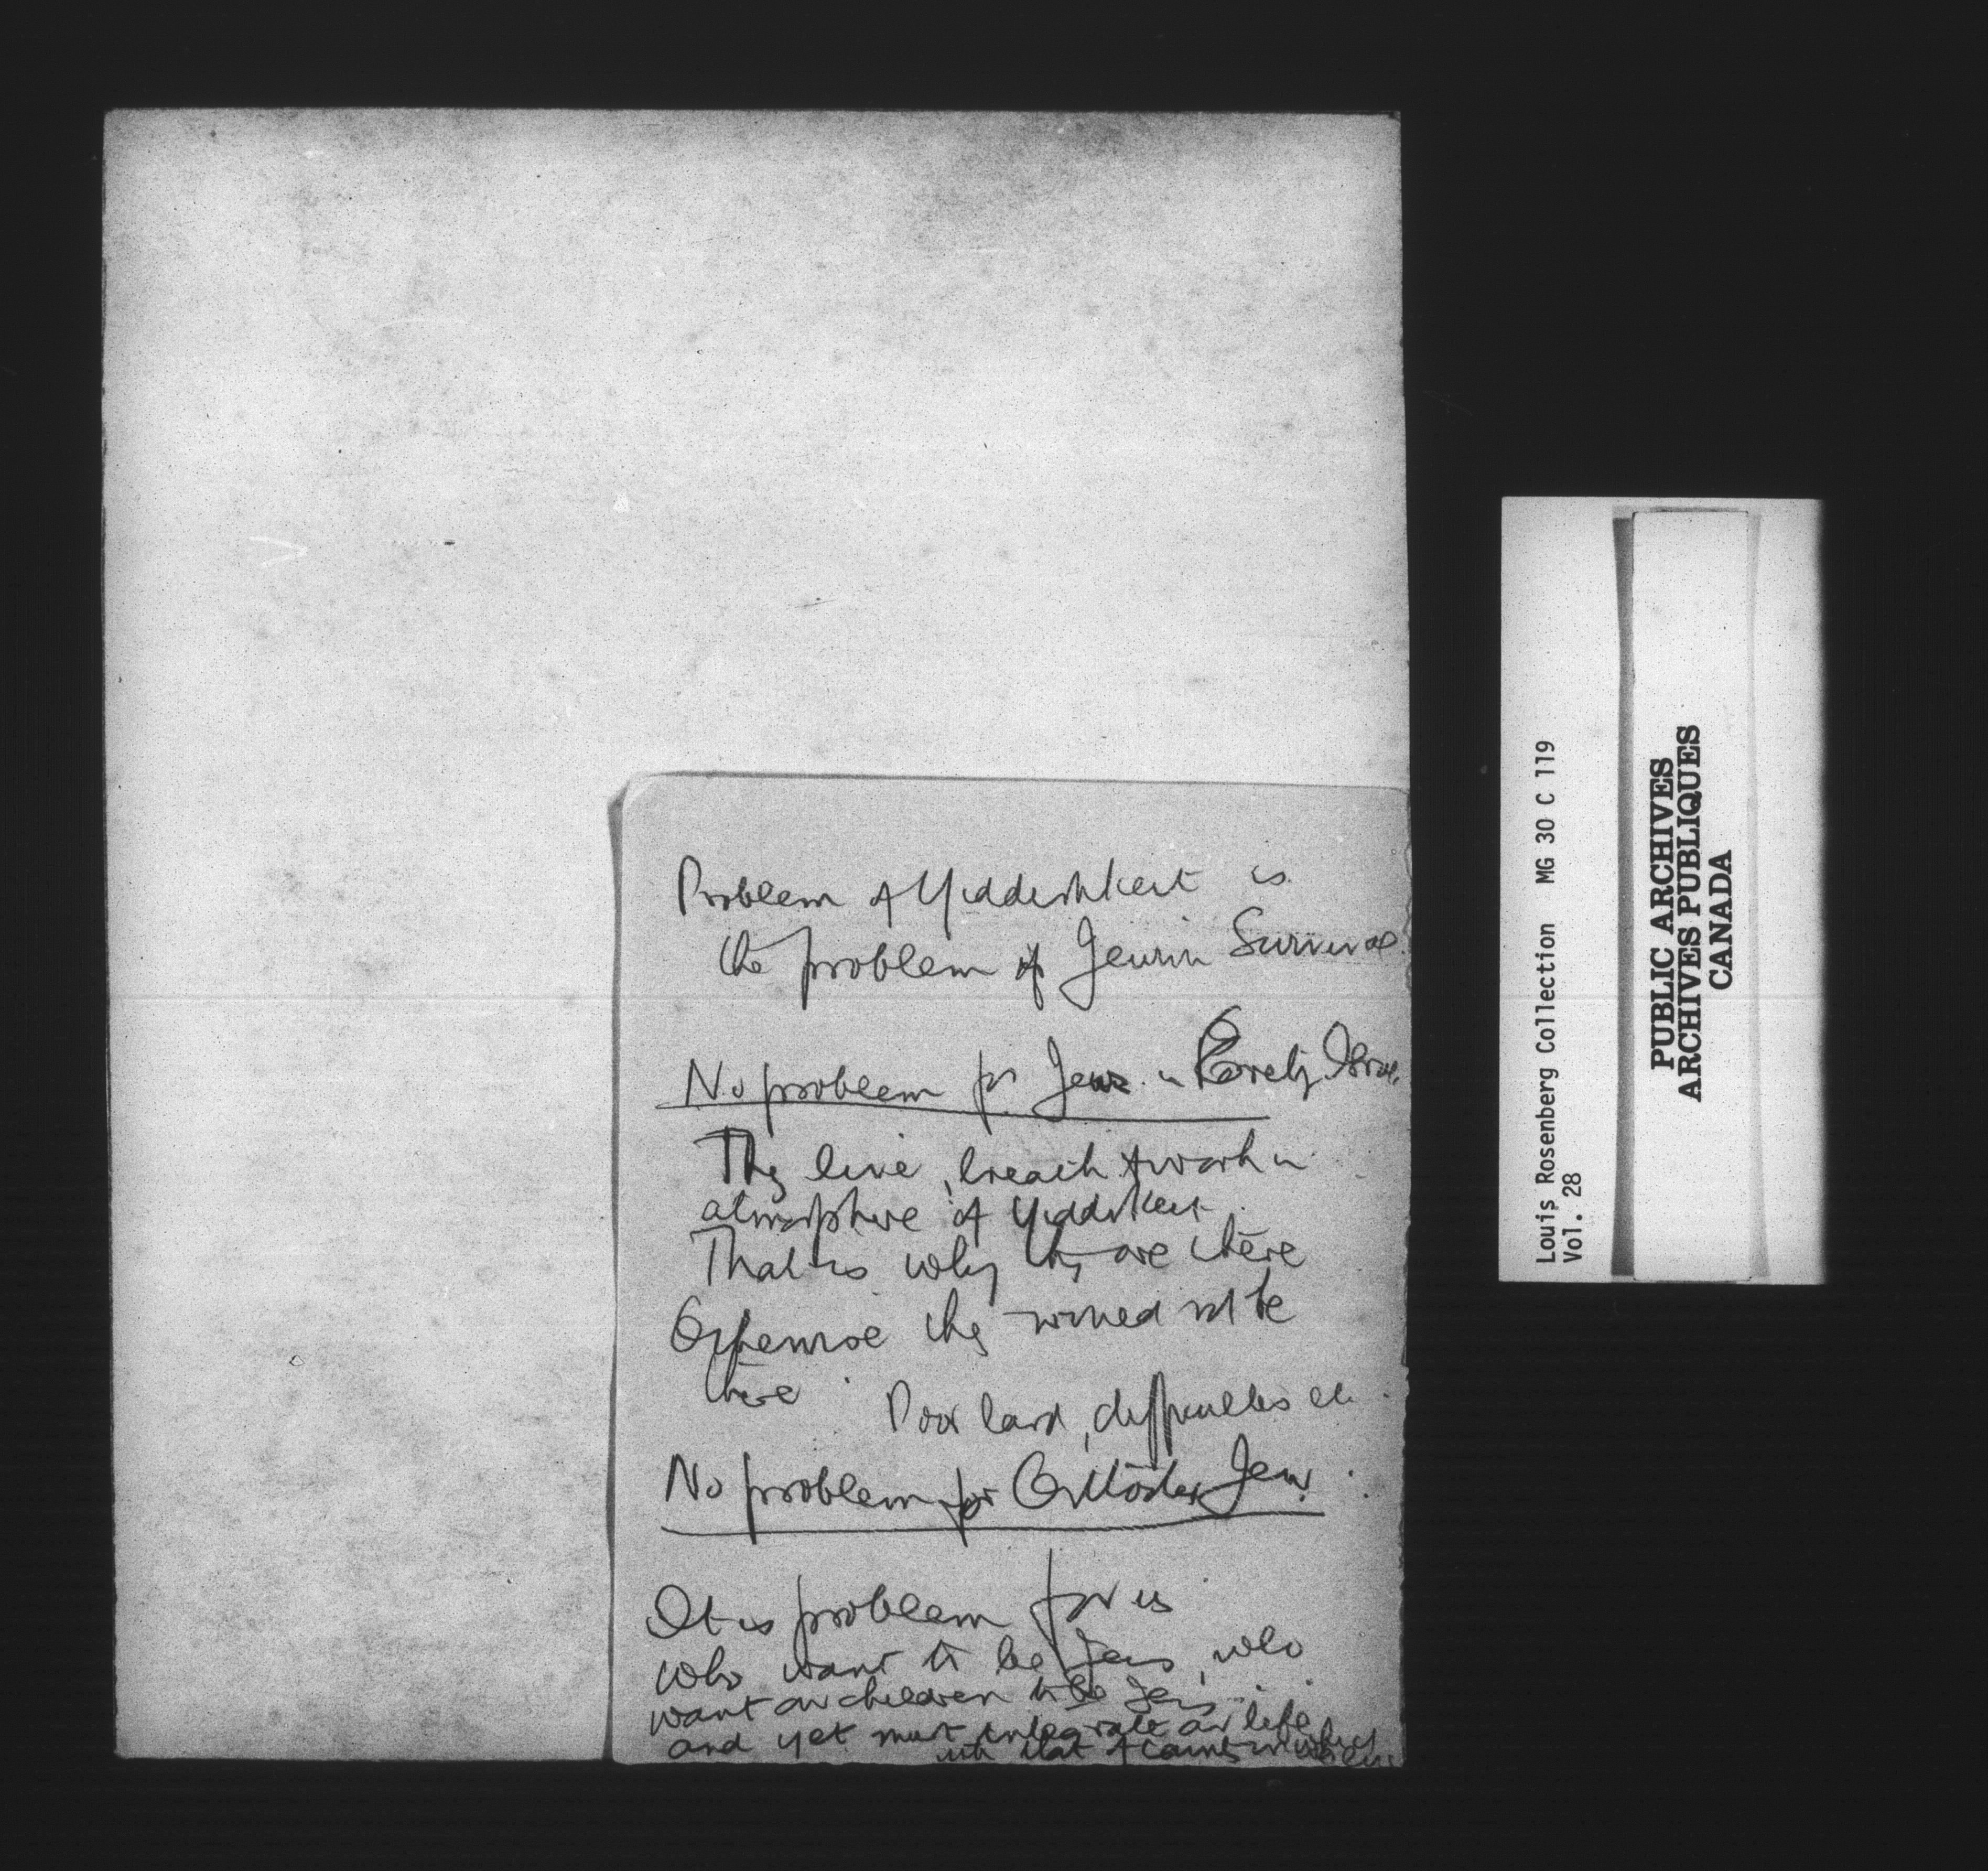 Problem of Yiddishkeit is
the problem of Jewish Survival.
No problem for Jews in Eretz Israel
They live, breath & work in
atmosphere of Yiddishkeit.
That is why they are there
Otherwise they would not be
there
Poor land, difficulties etc.
No problem for Orthodox Jew.
It is problem for us
who want to be Jews, who
want our children to be Jews
and yet must integrate our life
with that of country in which
Louis Rosenberg Collection MG 30 C 119
Vol. 28
PUBLIC ARCHIVES
ARCHIVES PUBLIQUES
CANADA